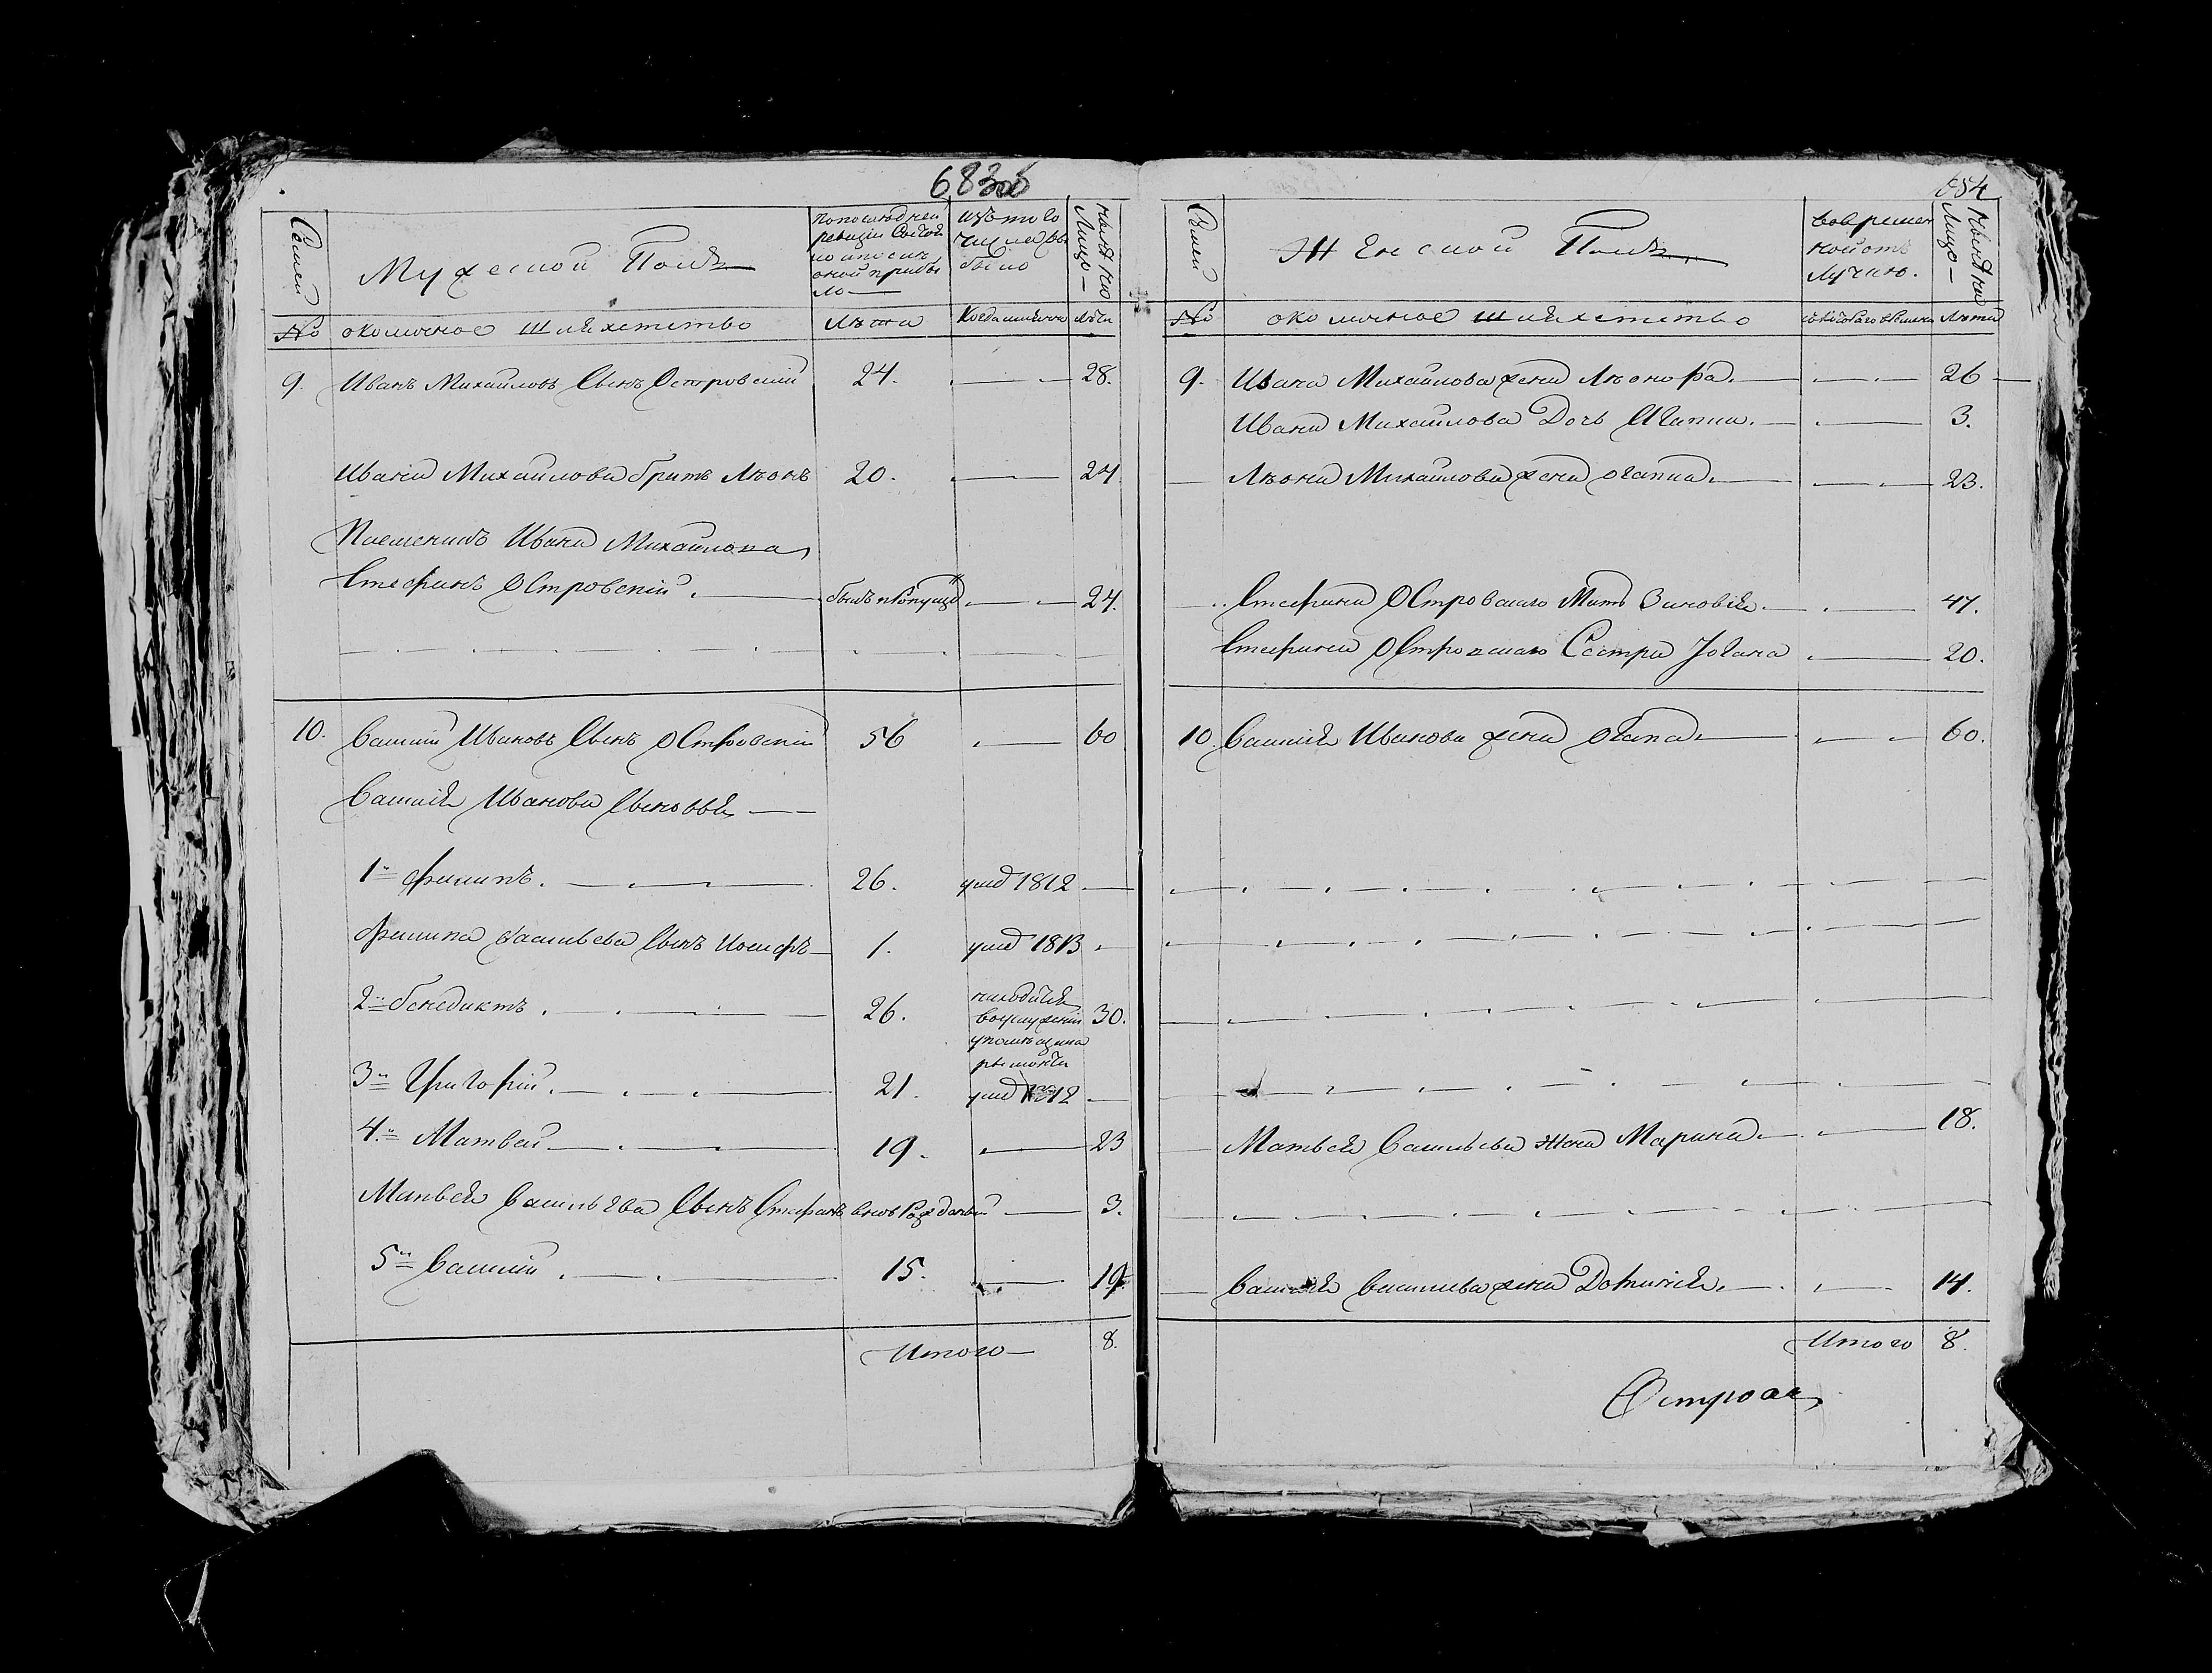 683об
Семей
Мужеской Полъ
по последней
ревизіи Состоя
ло и после
оной прибы
ло
изъ того
числа вы
было
ныне на
Лицо
№ околичное шляхетство Лѣта Когда имянно Лѣта
9. Иванъ Михайловъ Сынъ Островскій 24. 28.
Ивана Михайлова братъ Лѣонъ 20. 24
Племеникъ Ивана Михайлова
Стефанъ Островскій былъ пропущ 24.
10. Василій Ивановъ Сынъ Островскій 56 60
Василія Иванова Сыновья
1й Филипъ. 26. умер 1812
Филипа Васильева Сынъ Иосифъ 1. умер 1813
2й Бенедиктъ. 26. находится
вослужении 30.
упомѣщика
3й Григорій. 21. умер 1812
4й Матвей 19. 23
Матвея Васильева Сынъ Стефанъ вновь рожденый 3.
5й Василій 15. 19
Итого 8.
654
Семей
Женской Полъ
вовремен
ной отъ
лучке.
Ныне на
Лицо
№ околичное шляхетство съ котораго времени Лѣта
9. Ивана Михайлова жена Лѣонора 26
Ивана Михайлова Дочь Агапия 3.
Лѣона Михайлова жена Огапия 23.
Стефана Островскаго Мать Зиновія 47.
Стефана Островскаго Сестра Югана 20.
10. Василія Иванова жена Огапа 60.
Матвея Васильева жена Марина 18.
Василія Васильева жена Доминикія 14.
Итого 8.